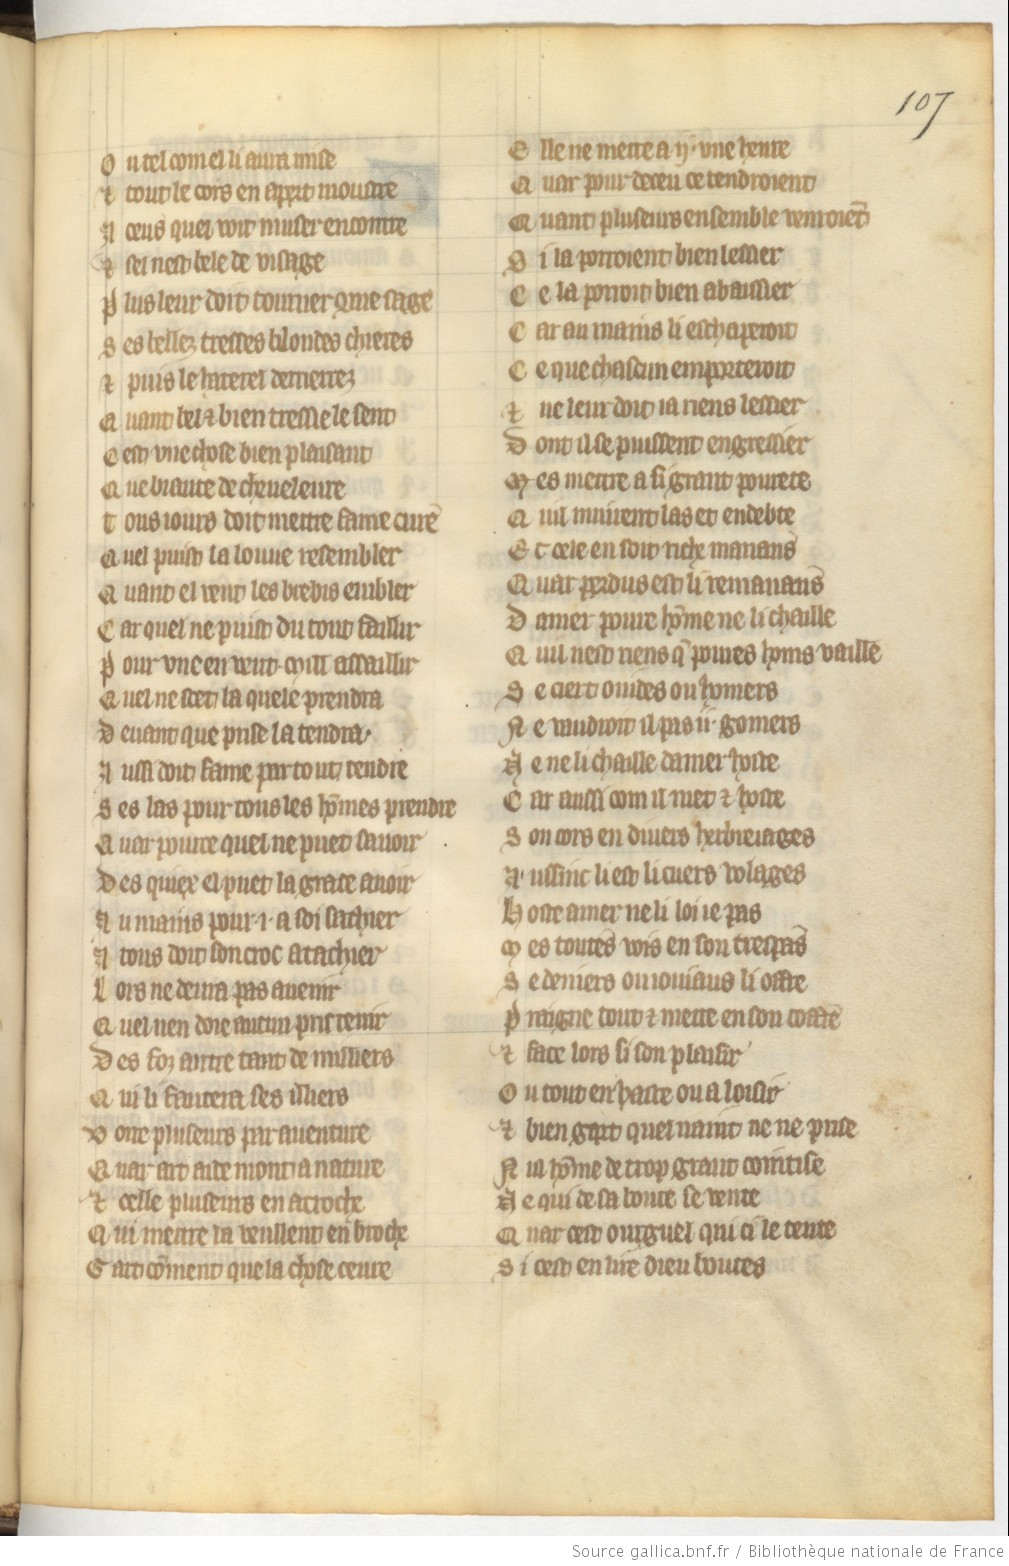 107
O u tel com el li aura mise
⁊ tout le cors en apert moustre
A ceus quel voit muser encontre
⁊ sel nest bele de visage
P lus leur doit tourner conme sage
S es bellez tresses blondes chieres
⁊ puis le haterel derrierez
Q uant bel ⁊ bien tressie le sent
C est vne chose bien plaisant
Q ue biaute de cheueleure
T ous iours doit mettre fame cure
Q uel puist la louue resembler
Q uant el veut les brebis embler
C ar quel ne puist du tout faillir
P our vne en veut mil assaillir
Q uel ne scet la quele prendra
D euant que prise la tendra
A ussi doit fame par tout tendre
S es las pour tous les hommes prendre
Q uar pource quel ne puet sauoir
D es quiex el puet la grace auoir
A u mains pour ·i· a soi sachier
A tous doit son croc atachier
L ors ne deura pas auenir
Q uel nen doie aucun pris tenir
D es foz autre tant de milliers
Q ui li frotera ses illiers
V oire pluseurs par auenture
Q uar art aide mont a nature
⁊ celle pluseurs en acroche
Q ui mettre la veullent en broche
G art comment que la chose ceure
E lle ne mette a ·ij· vne heure
Q uar pour deceu ce tendroient
Q uant pluseurs ensemble venroient
S i la porroient bien lessier
C e la porroit bien abaissier
C ar au mains li eschaperoit
C e que chascun emporteroit
⁊ ne leur doit ia riens lessier
D ont il se puissent engressier
M es mettre a si grant pourete
Q uil muirent las et endete
E t cele en soit riche manans
Q uar perdus est li remanans
D amer poure homme ne li chaille
Q uil nest riens que poures homs vaille
S e ciert ouides ou homers
N e vaudroit il pas ·ii· gomers
N e ne li chaille damer hoste
C ar aussi com il met ⁊ hoste
S on cors en diuers herbierages
A ussinc li est li cuers volages
H oste amer ne li lo ie pas
M es toutes vois en son trespas
S e deniers ou ioiaus li offre
P raigne tout ⁊ mette en son coffre
⁊ face lors si son plaisir
O u tout en haste ou a loisir
⁊ bien gart quel naint ne ne prise
N ul homme de trop grant cointise
N e qui de sa biaute se vente
Q uar cest ourguel qui ci le tente
S i cest en lire dieu boutes
Source gallica.bnf.fr / Bibliothèque nationale de France